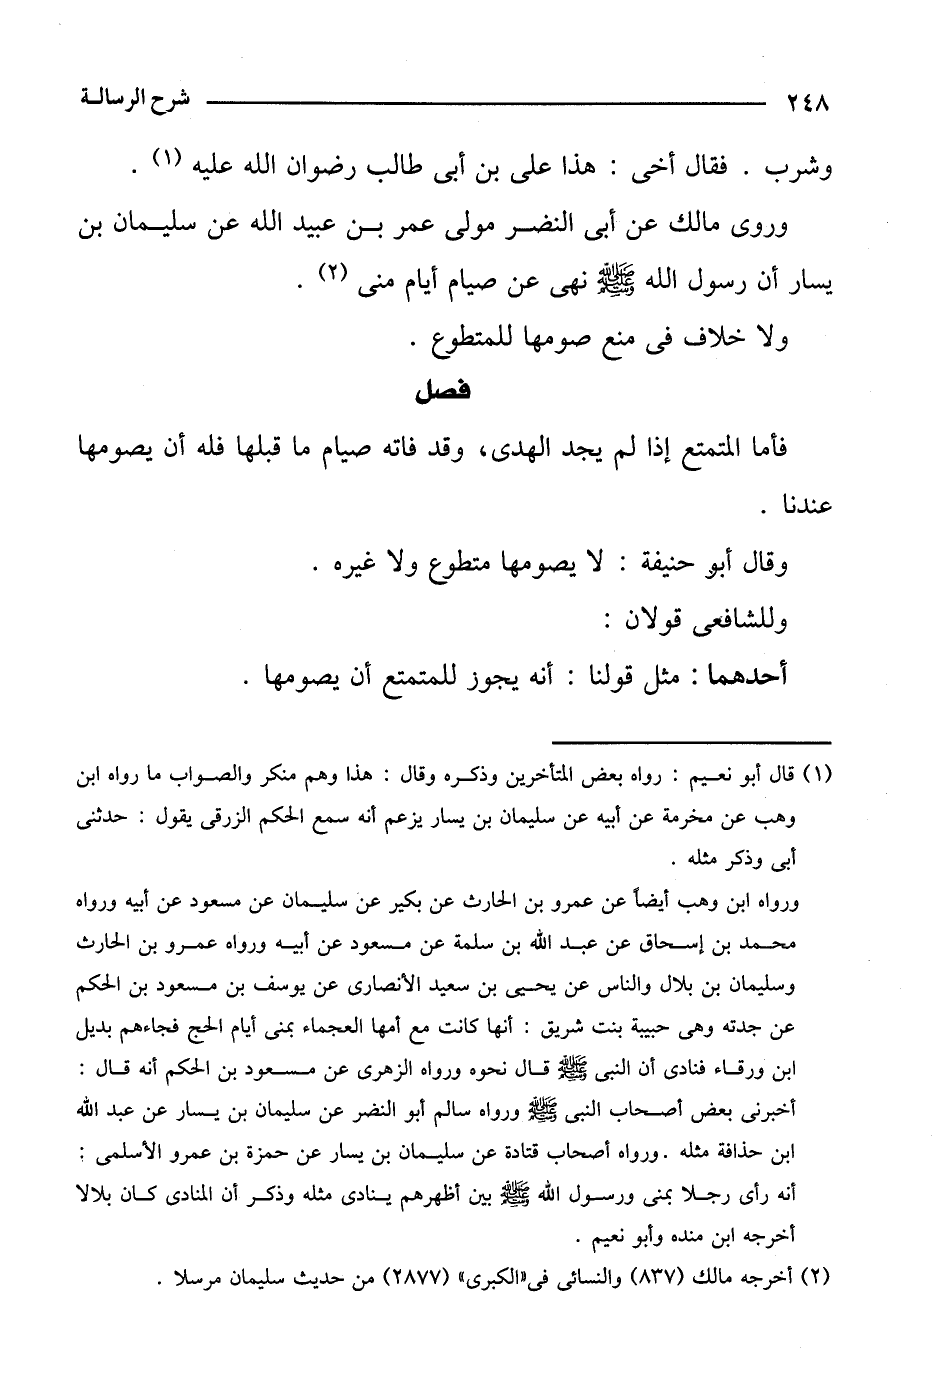 ٢٤٨ شرح الرسالـة
وشرب . فقال أخى : هذا على بن أبى طالب رضوان الله عليه (١) .
وروى مالك عن أبى النضـر مولى عمر بـن عبيد الله عن سليـمان بن
يسار أن رسول الله ﷺ نهى عن صيام أيام منى (٢) .
ولا خلاف فى منع صومها للمتطوع .
فصل
فأما المتمتع إذا لم يجد الهدى، وقد فاته صيام ما قبلها فله أن يصومها
عندنا .
وقال أبو حنيفة : لا يصومها متطوع ولا غيره .
وللشافعى قولان :
أحدهما : مثل قولنا : أنه يجوز للمتمتع أن يصومها .
(١) قال أبو نعـيم : رواه بعض المتأخرين وذكـره وقال : هذا وهم منكر والصـواب ما رواه ابن
وهب عن مخرمة عن أبيه عن سليمان بن يسار يزعم أنه سمع الحكم الزرقى يقول : حدثنى
أبى وذكر مثله .
ورواه ابن وهب أيضاً عن عمرو بن الحارث عن بكير عن سليـمان عن مسعود عن أبيه ورواه
محـمد بن إسـحاق عن عبـد الله بن سلمة عن مـسعود عن أبيـه ورواه عمـرو بن الحارث
وسليمان بن بلال والناس عن يحـيى بن سعيد الأنصارى عن يوسف بن مـسعود بن الحكم
عن جدته وهى حبيبة بنت شريق : أنها كانت مع أمها العجماء بمنى أيام الحج فجاءهم بديل
ابن ورقـاء فنادى أن النبى ﷺ قـال نحوه ورواه الزهرى عن مـسـعود بن الحكم أنه قـال :
أخبرنى بعض أصـحاب النبى ﷺ ورواه سالم أبو النضر عن سليمان بن يـسار عن عبد الله
ابن حذافة مثله . ورواه أصحاب قتادة عن سليـمان بن يسار عن حمزة بن عمرو الأسلمى :
أنه رأى رجـلا بمنى ورسـول الله ﷺ بين أظهرهم يـنادى مثله وذكـر أن المنادى كـان بلالا
أخرجه ابن منده وأبو نعيم .
(٢) أخرجه مالك (٨٣٧) والنسائى فى«الكبرى» (٢٨٧٧) من حديث سليمان مرسلا .